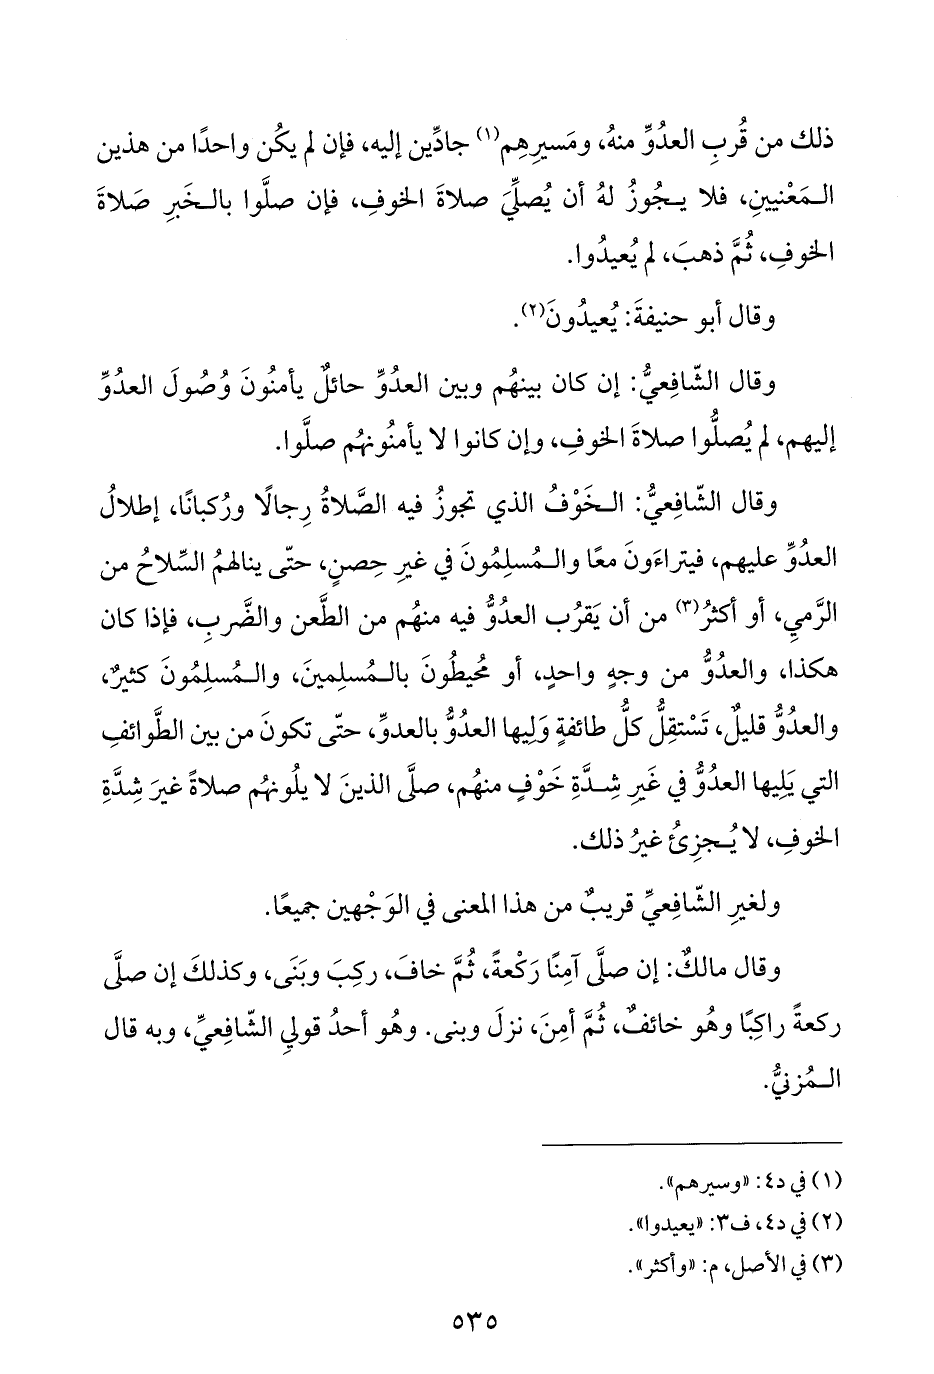 ذلك من قُربِ العدُوِّ منهُ، ومَسيرِهِم(١) جادِّين إليه، فإن لم يكُن واحدًا من هذين
الـمَعْنيينِ، فلا يـجُوزُ لهُ أن يُصلِّيَ صلاةَ الخوفِ، فإن صلَّوا بالـخَبرِ صَلاةَ
الخوفِ، ثُمَّ ذهبَ، لم يُعيدُوا.
وقال أبو حنيفةَ: يُعيدُونَ(٢).
وقال الشّافِعيُّ: إن كان بينهُم وبين العدُوِّ حائلٌ يأمنُونَ وُصُولَ العدُوِّ
إليهم، لم يُصلُّوا صلاةَ الخوفِ، وإن كانوا لا يأمنُونهُم صلَّوا.
وقال الشّافِعيُّ: الـخَوْفُ الذي تجوزُ فيه الصَّلاةُ رِجالًا ورُكبانًا، إطلالُ
العدُوِّ عليهم، فيتراءَونَ معًا والـمُسلِمُونَ في غيرِ حِصنٍ، حتّى ينالهمُ السِّلاحُ من
الرَّميِ، أو أكثرُ(٣) من أن يَقرُب العدُوُّ فيه منهُم من الطَّعن والضَّربِ، فإذا كان
هكذا، والعدُوُّ من وجهٍ واحدٍ، أو مُحيطُونَ بالـمُسلِمينَ، والـمُسلِمُونَ كثيرٌ،
والعدُوُّ قليلٌ، تَسْتقِلُّ كلُّ طائفةٍ وَلِيها العدُوُّ بالعدوِّ، حتّى تكونَ من بين الطَّوائفِ
التي يَلِيها العدُوُّ في غَيرِ شِدَّةِ خَوْفٍ منهُم، صلَّى الذينَ لا يلُونهُم صلاةً غيرَ شِدَّةِ
الخوفِ، لا يُـجزِئُ غيرُ ذلك.
ولغيرِ الشّافِعيِّ قريبٌ من هذا المعنى في الوَجْهين جميعًا.
وقال مالكٌ: إن صلَّى آمِنًا رَكْعةً، ثُمَّ خافَ، ركِبَ وبَنَى، وكذلكَ إن صلَّى
ركعةً راكِبًا وهُو خائفٌ، ثُمَّ أمِنَ، نزلَ وبنى. وهُو أحدُ قوليِ الشّافِعيِّ، وبه قال
الـمُزنيُّ.
(١) في د٤: «وسيرهم».
(٢) في د٤، ف٣: «يعيدوا».
(٣) في الأصل، م: «وأكثر».
٥٣٥